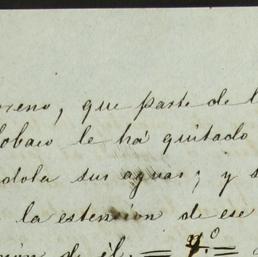 reno, que parte de l
obaco le há quitado
dola sus aguas; y s
la estension de ese
de él. = 9.º =